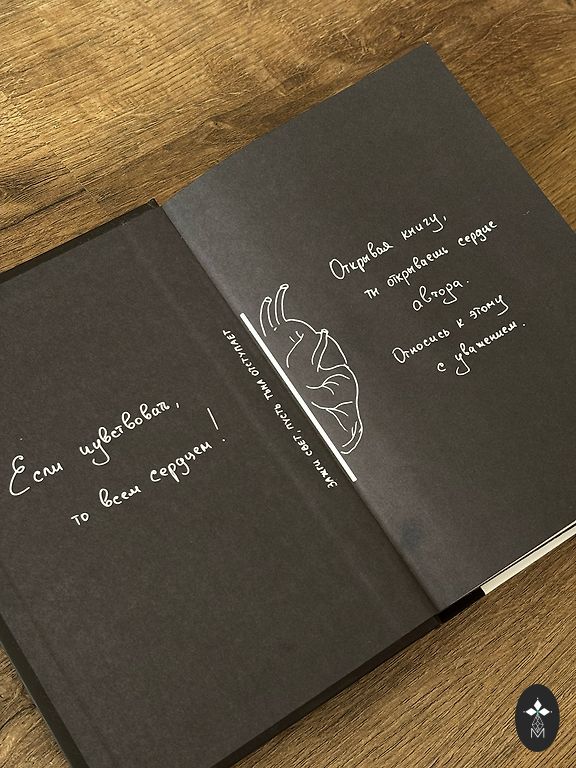 Если чувствовать,
то всем сердцем!
ЗАЖГИ СВЕТ, ПУСТЬ ТЬМА ОТСТУПАЕТ
Открывая книгу,
ты открываешь сердце
автора.
Относись к этому
с уважением.
M